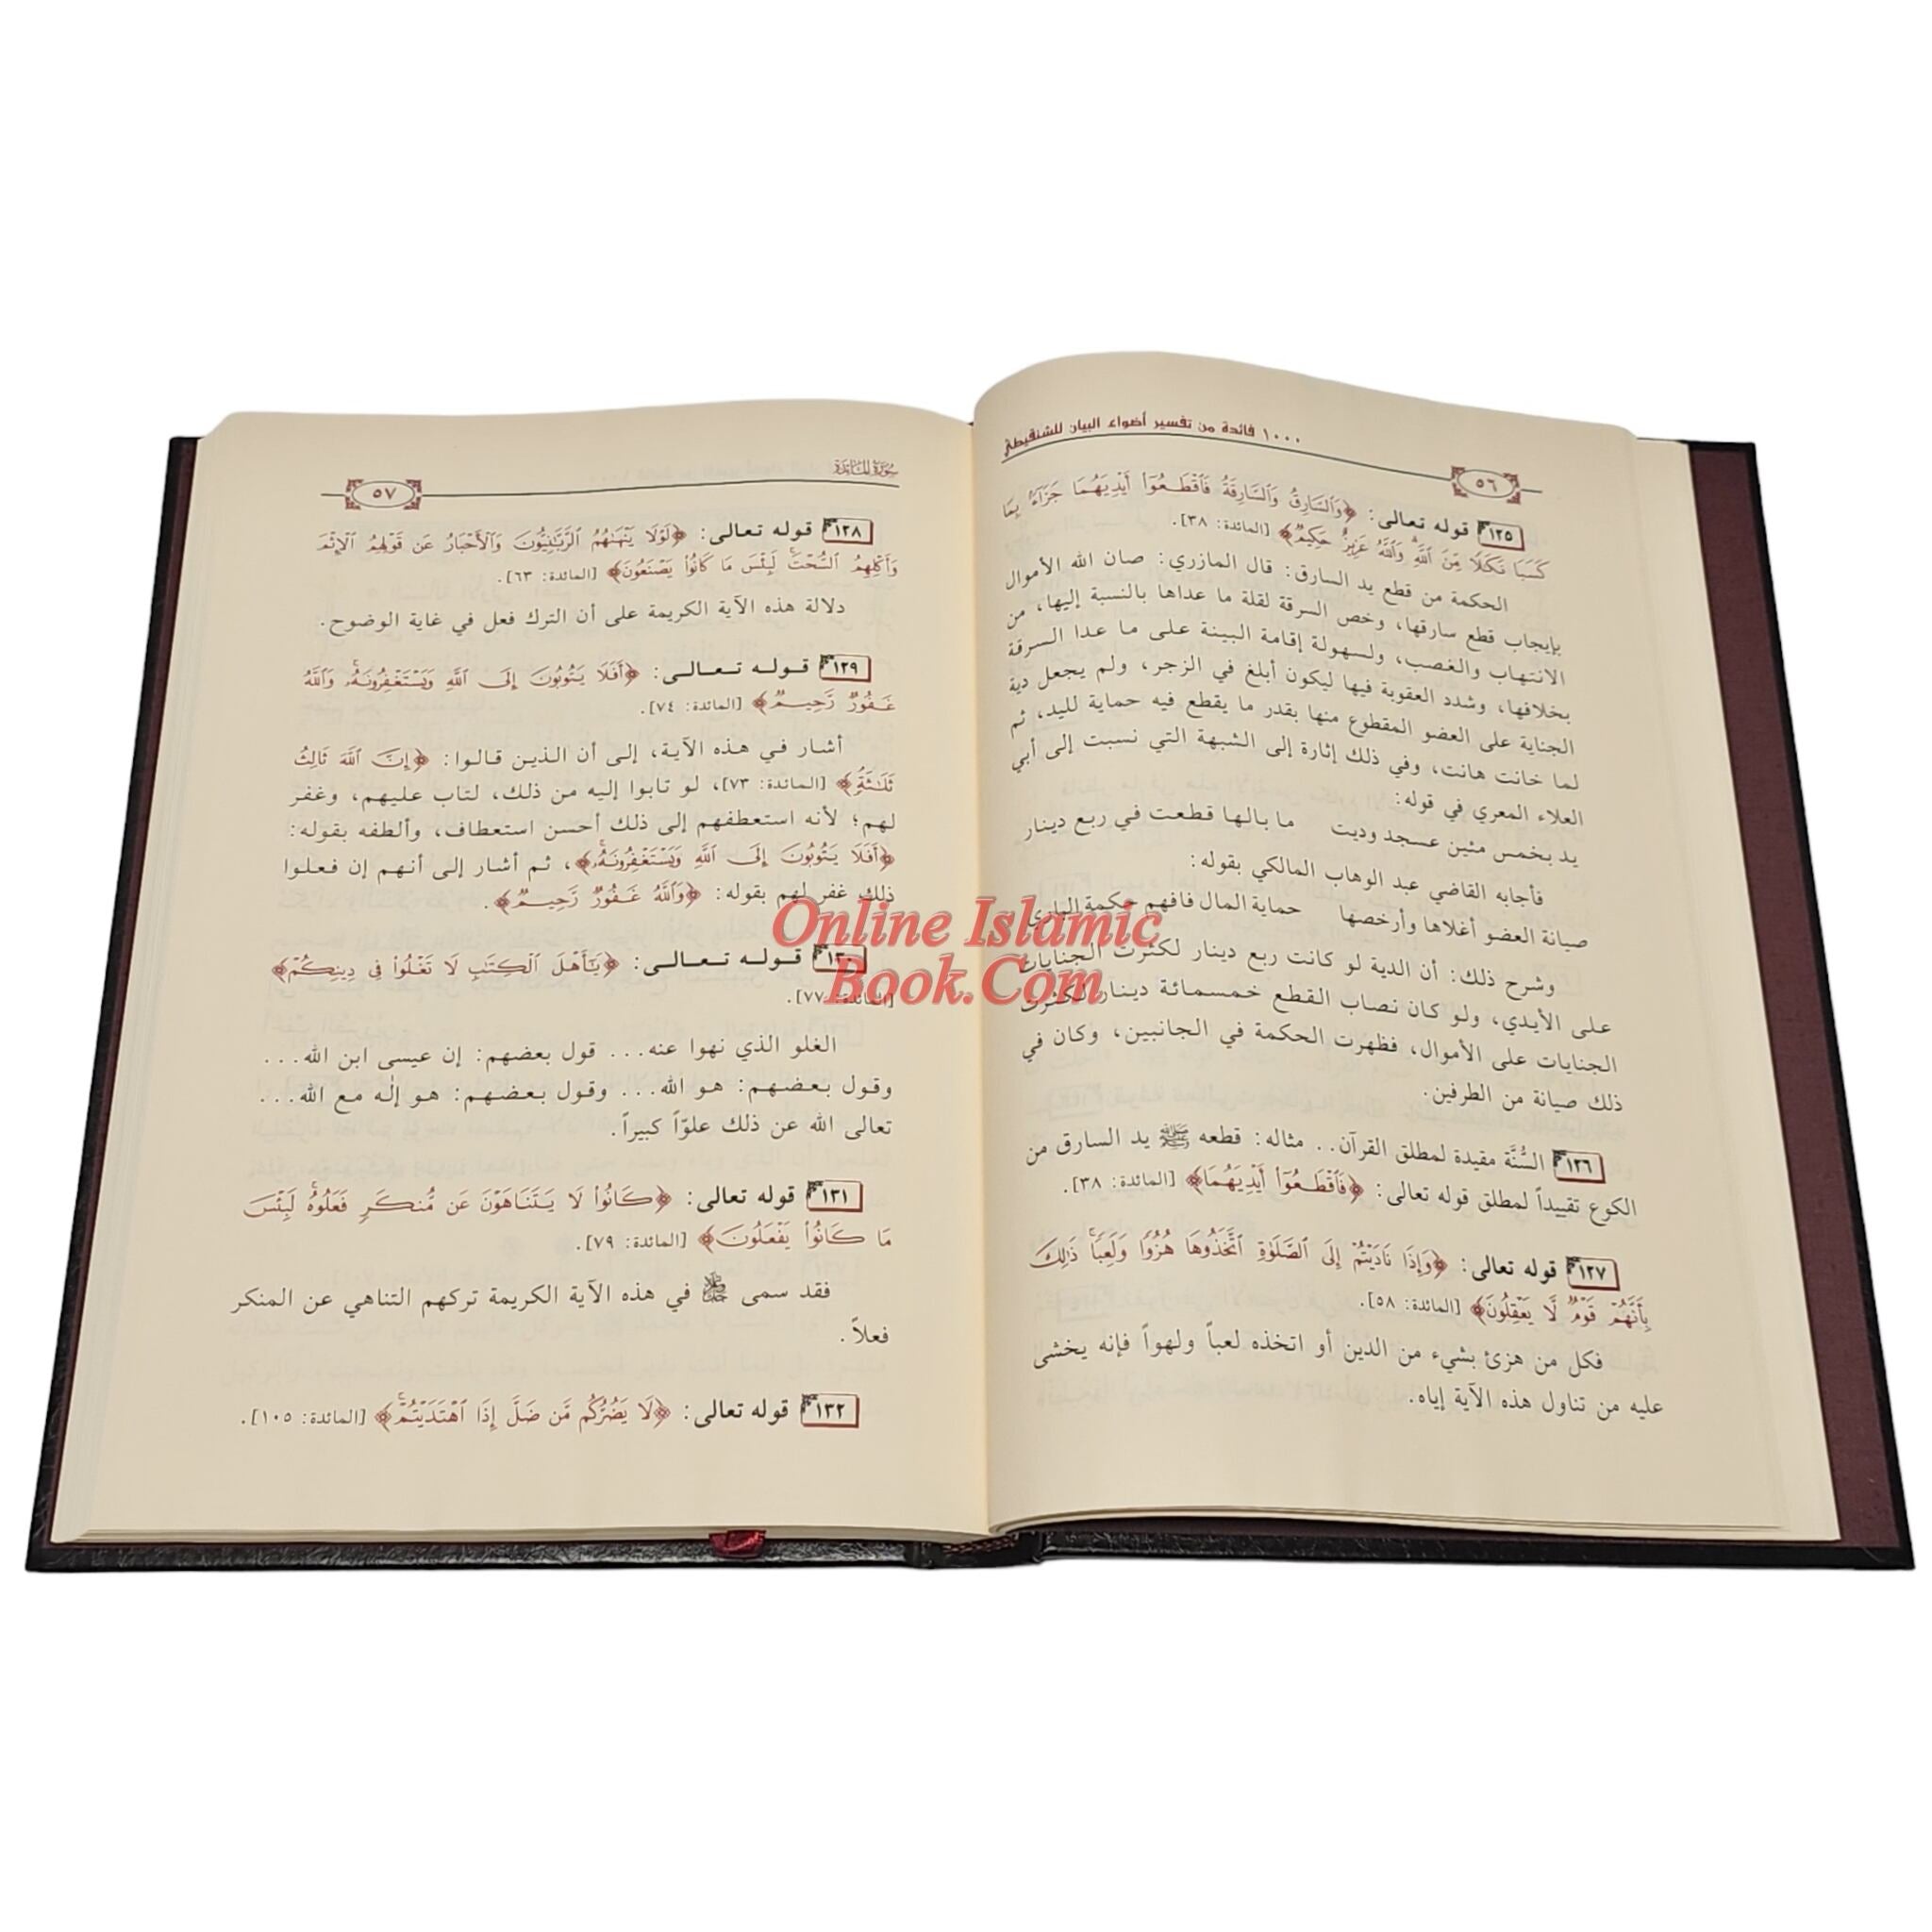 ١٠٠٠ فائدة من تفسير أضواء البيان للشنقيطي
٥٦
١٢٥ قوله تعالى: ﴿وَٱلسَّارِقُ وَٱلسَّارِقَةُ فَٱقْطَعُوٓا۟ أَيْدِيَهُمَا جَزَآءًۢ بِمَا
كَسَبَا نَكَٰلًا مِّنَ ٱللَّهِ ۗ وَٱللَّهُ عَزِيزٌ حَكِيمٌ﴾ [المائدة: ٣٨].
الحكمة من قطع يد السارق: قال المازري: صان الله الأموال
بإيجاب قطع سارقها، وخص السرقة لقلة ما عداها بالنسبة إليها، من
الانتهاب والغصب، ولسهولة إقامة البينة على ما عدا السرقة
بخلافها، وشدد العقوبة فيها ليكون أبلغ في الزجر، ولم يجعل دية
الجناية على العضو المقطوع منها بقدر ما يقطع فيه حماية لليد، ثم
لما خانت هانت، وفي ذلك إثارة إلى الشبهة التي نسبت إلى أبي
العلاء المعري في قوله:
يد بخمس مئين عسجد وديت ما بالها قطعت في ربع دينار
فأجابه القاضي عبد الوهاب المالكي بقوله:
صيانة العضو أغلاها وأرخصها حماية المال فافهم حكمة الباري
وشرح ذلك: أن الدية لو كانت ربع دينار لكثرت الجنايات
على الأيدي، ولو كان نصاب القطع خمسمائة دينار لكثرت
الجنايات على الأموال، فظهرت الحكمة في الجانبين، وكان في
ذلك صيانة من الطرفين.
١٢٦ السُّنَّة مقيدة لمطلق القرآن.. مثاله: قطعه ﷺ يد السارق من
الكوع تقييداً لمطلق قوله تعالى: ﴿فَٱقْطَعُوٓا۟ أَيْدِيَهُمَا﴾ [المائدة: ٣٨].
١٢٧ قوله تعالى: ﴿وَإِذَا نَادَيْتُمْ إِلَى ٱلصَّلَوٰةِ ٱتَّخَذُوهَا هُزُوًا وَلَعِبًا ۚ ذَٰلِكَ
بِأَنَّهُمْ قَوْمٌ لَّا يَعْقِلُونَ﴾ [المائدة: ٥٨].
فكل من هزئ بشيء من الدين أو اتخذه لعباً ولهواً فإنه يخشى
عليه من تناول هذه الآية إياه.
سُورَةُ المَائِدَةِ
٥٧
١٢٨ قوله تعالى: ﴿لَوْلَا يَنْهَىٰهُمُ ٱلرَّبَّٰنِيُّونَ وَٱلْأَحْبَارُ عَن قَوْلِهِمُ ٱلْإِثْمَ
وَأَكْلِهِمُ ٱلسُّحْتَ ۚ لَبِئْسَ مَا كَانُوا۟ يَصْنَعُونَ﴾ [المائدة: ٦٣].
دلالة هذه الآية الكريمة على أن الترك فعل في غاية الوضوح.
١٢٩ قوله تعالى: ﴿أَفَلَا يَتُوبُونَ إِلَى ٱللَّهِ وَيَسْتَغْفِرُونَهُۥ ۚ وَٱللَّهُ
غَفُورٌ رَّحِيمٌ﴾ [المائدة: ٧٤].
أشار في هذه الآية، إلى أن الذين قالوا: ﴿إِنَّ ٱللَّهَ ثَالِثُ
ثَلَٰثَةٍ﴾ [المائدة: ٧٣]، لو تابوا إليه من ذلك، لتاب عليهم، وغفر
لهم؛ لأنه استعطفهم إلى ذلك أحسن استعطاف، وألطفه بقوله:
﴿أَفَلَا يَتُوبُونَ إِلَى ٱللَّهِ وَيَسْتَغْفِرُونَهُۥ﴾، ثم أشار إلى أنهم إن فعلوا
ذلك غفر لهم بقوله: ﴿وَٱللَّهُ غَفُورٌ رَّحِيمٌ﴾.
١٣٠ قوله تعالى: ﴿يَٰٓأَهْلَ ٱلْكِتَٰبِ لَا تَغْلُوا۟ فِى دِينِكُمْ﴾
[المائدة: ٧٧].
الغلو الذي نهوا عنه... قول بعضهم: إن عيسى ابن الله...
وقول بعضهم: هو الله... وقول بعضهم: هو إلٰه مع الله...
تعالى الله عن ذلك علوّاً كبيراً.
١٣١ قوله تعالى: ﴿كَانُوا۟ لَا يَتَنَاهَوْنَ عَن مُّنكَرٍ فَعَلُوهُ ۚ لَبِئْسَ
مَا كَانُوا۟ يَفْعَلُونَ﴾ [المائدة: ٧٩].
فقد سمى ﷻ في هذه الآية الكريمة تركهم التناهي عن المنكر
فعلاً.
١٣٢ قوله تعالى: ﴿لَا يَضُرُّكُم مَّن ضَلَّ إِذَا ٱهْتَدَيْتُمْ ۚ﴾ [المائدة: ١٠٥].
Online Islamic
Book.Com